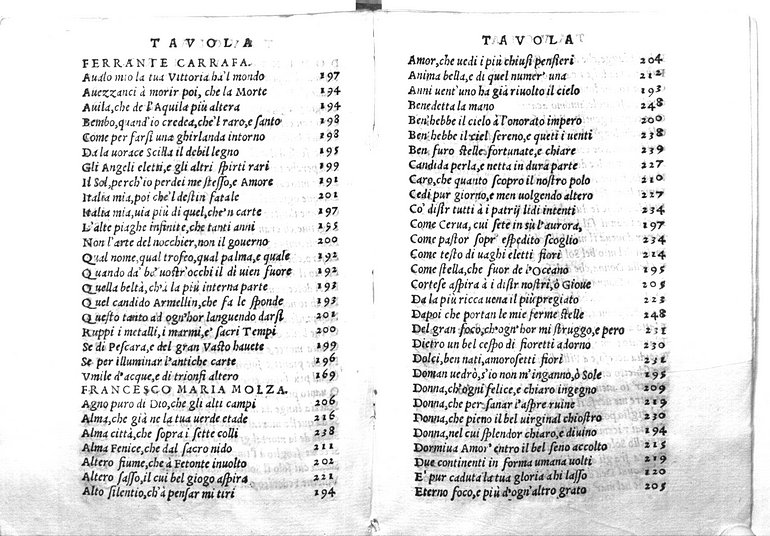 TAVOLA
FERRANTE CARRAFA.
Aualo mio la tua Vittoria ha'l mondo 197
Auezzanci à morir poi, che la Morte 194
Auila, che de l'Aquila più altera 194
Bembo, quand'io credea, che'l raro, e santo 198
Come per farsi una ghirlanda intorno 198
Da la uorace Scilla il debil legno 195
Gli Angeli eletti, e gli altri spirti rari 199
Il Sol, perch'io perdei me stesso, e Amore 191
Italia mia, poi che'l destin fatale 201
Italia mia, uia più di quel, che'n carte 197
L'alte piaghe infinite, che tanti anni 195
Non l'arte del nocchier, non il gouerno 200
Qual nome, qual trofeo, qual palma, e quale 192
Quando da be' uostr'occhi il di uien fuore 192
Quella beltà, ch'à la più interna parte 193
Quel candido Armellin, che fa le sponde 193
Questo tanto ad ogn'hor languendo darsi 201
Ruppi i metalli, i marmi, e' sacri Tempi 200
Se di Pescara, e del gran Vasto hauete 199
Se per illuminar l'antiche carte 196
Vmile d'acque, e di trionfi altero 169
FRANCESCO MARIA MOLZA.
Agno puro di Dio, che gli alti campi 206
Alma, che già ne la tua uerde etade 216
Alma città, che sopra i sette colli 238
Alma Fenice, che dal sacro nido 211
Altero fiume, che à Fetonte inuolto 202
Altero sasso, il cui bel giogo aspira 221
Alto silentio, ch'à pensar mi tiri 194
TAVOLA
Amor, che uedi i più chiusi pensieri 204
Anima bella, e di quel numer' una 212
Anni uent'uno ha già riuolto il cielo 193
Benedetta la mano 248
Ben'hebbe il cielo à l'onorato impero 200
Ben'hebbe il ciel sereno, e queti i uenti 238
Ben furo stelle fortunate, e chiare 239
Candida perla, e netta in dura parte 227
Caro, che quanto scopro il nostro polo 210
Cedi pur giorno, e men uolgendo altero 227
Co' distr tutti à i patrij lidi intenti 234
Come Cerua, cui sete in sù l'aurora, 197
Come pastor sopr' espedito scoglio 234
Come testo di uaghi eletti fiori 214
Come stella, che fuor de l'Oceano 195
Cortese aspira à i distr nostri, ò Gioue 205
Da la più ricca uena il più pregiato 223
Dapoi che portan le mie ferme stelle 248
Del gran foco, ch'ogn'hor mi struggo, e pero 231
Dietro un bel cespo di fioretti adorno 230
Dolci, ben nati, amorosetti fiori 231
Doman uedrò, s'io non m'inganno, ò Sole 195
Donna, ch'ogni felice, e chiaro ingegno 209
Donna, che per sanar l'aspre ruine 219
Donna, che pieno il bel uirginal chiostro 230
Donna, nel cui splendor chiaro, e diuino 194
Dormiua Amor' entro il bel seno accolto 215
Due continenti in forma umana uolti 219
E' pur caduta la tua gloria ahi lasso 120
Eterno foco, e più d'ogn'altro grato 205